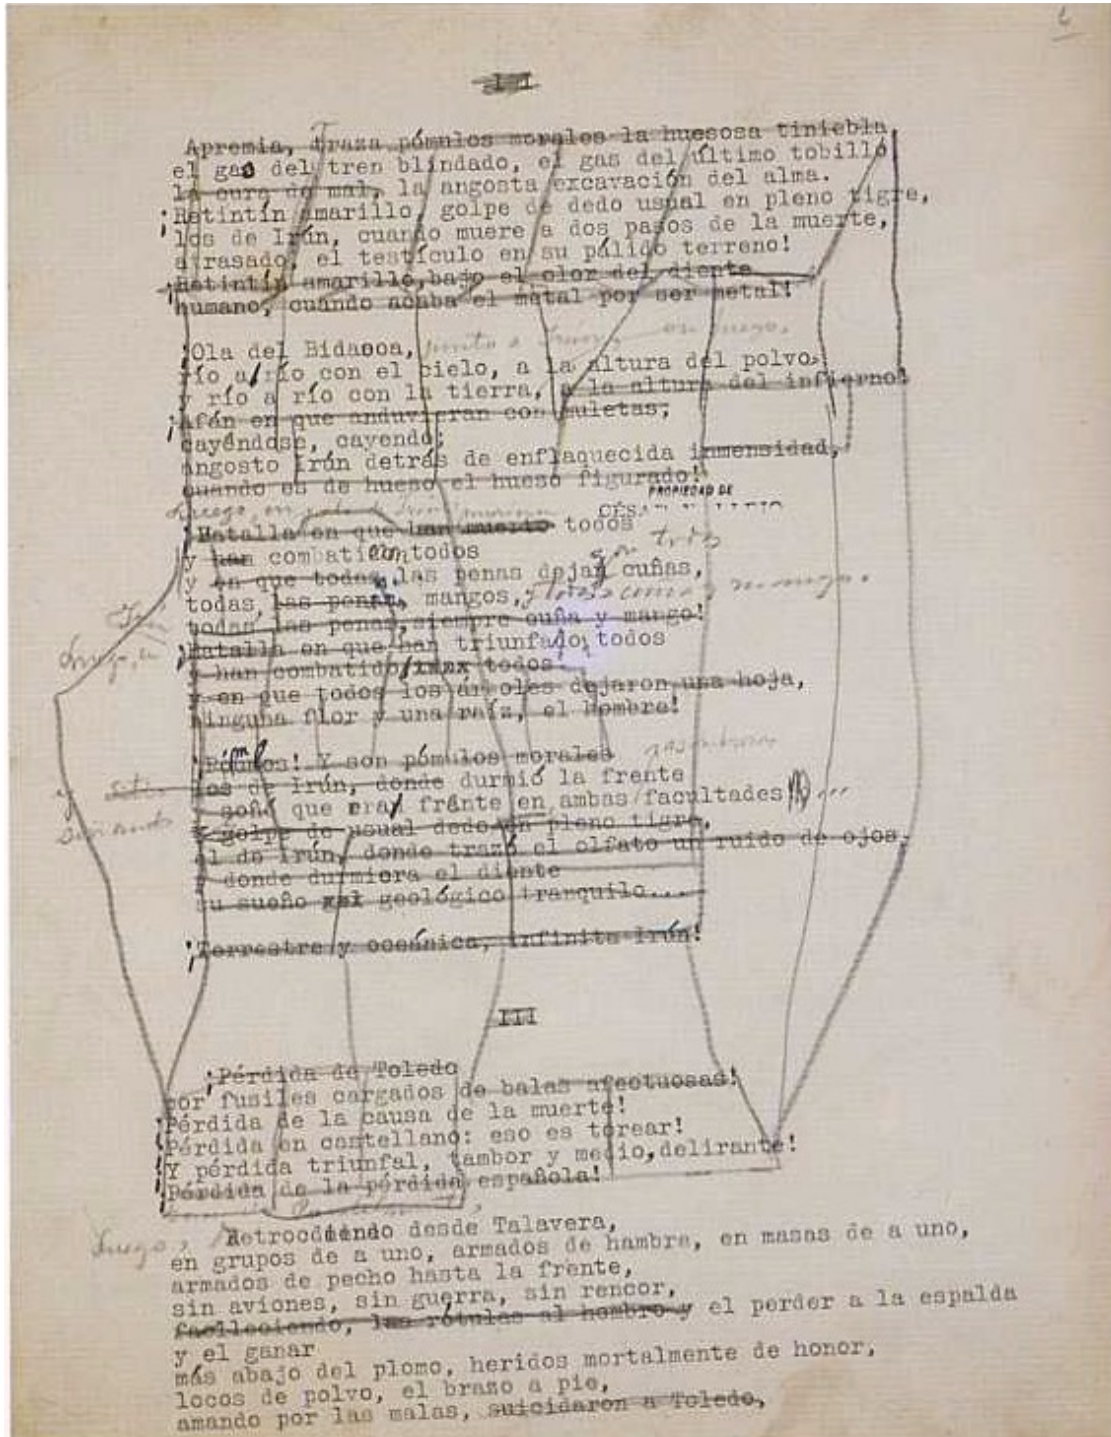 III
Apremia, traza pómulos morales la huesosa tiniebla,
el gas del tren blindado, el gas del último tobillo
la cura de mal, la angosta excavación del alma.
¡Retintín amarillo, golpe de dedo usual en pleno tigre,
los de Irún, cuando muere a dos pasos de la muerte,
atrasado, el testículo en su pálido terreno!
¡Retintín amarillo, bajo el olor del diente
humano, cuando acaba el metal por ser metal!
¡Ola del Bidasoa,
río a río con el cielo, a la altura del polvo,
y río a río con la tierra, a la altura del infierno!
¡Afán en que anduvieran con muletas,
cayéndose, cayendo;
angosto Irún detrás de enflaquecida inmensidad,
cuando es de hueso el hueso figurado!
PROPIEDAD DE
¡Batalla en que han muerto todos
y han combatido todos
y en que todas las penas dejan cuñas,
todas las penas, mangos,
todas las penas, siempre cuña y mango!
¡Batalla en que han triunfado todos
y han combatido todos
y en que todos los árboles dejaron una hoja,
ninguna flor y una raíz, el hombre!
¡Pómulos! Y son pómulos morales
los de Irún, donde durmió la frente
y soñó que era frente en ambas facultades...
Y golpe de usual dedo en pleno tigre,
el de Irún, donde trazó el olfato un ruido de ojos,
y donde durmiera el diente
su sueño geológico tranquilo...
¡Terrestre y oceánica, infinita Irún!
III
¡Pérdida de Toledo
por fusiles cargados de balas afectuosas!
¡Pérdida de la causa de la muerte!
¡Pérdida en castellano: eso es torear!
¡Y pérdida triunfal, tambor y medio, delirante!
¡Pérdida de la pérdida española!
Luego, Retrocediendo desde Talavera,
en grupos de a uno, armados de hambre, en masas de a uno,
armados de pecho hasta la frente,
sin aviones, sin guerra, sin rencor,
las rótulas al hombro y el perder a la espalda
y el ganar
más abajo del plomo, heridos mortalmente de honor,
locos de polvo, el brazo a pie,
amando por las malas, suicidaron a Toledo,